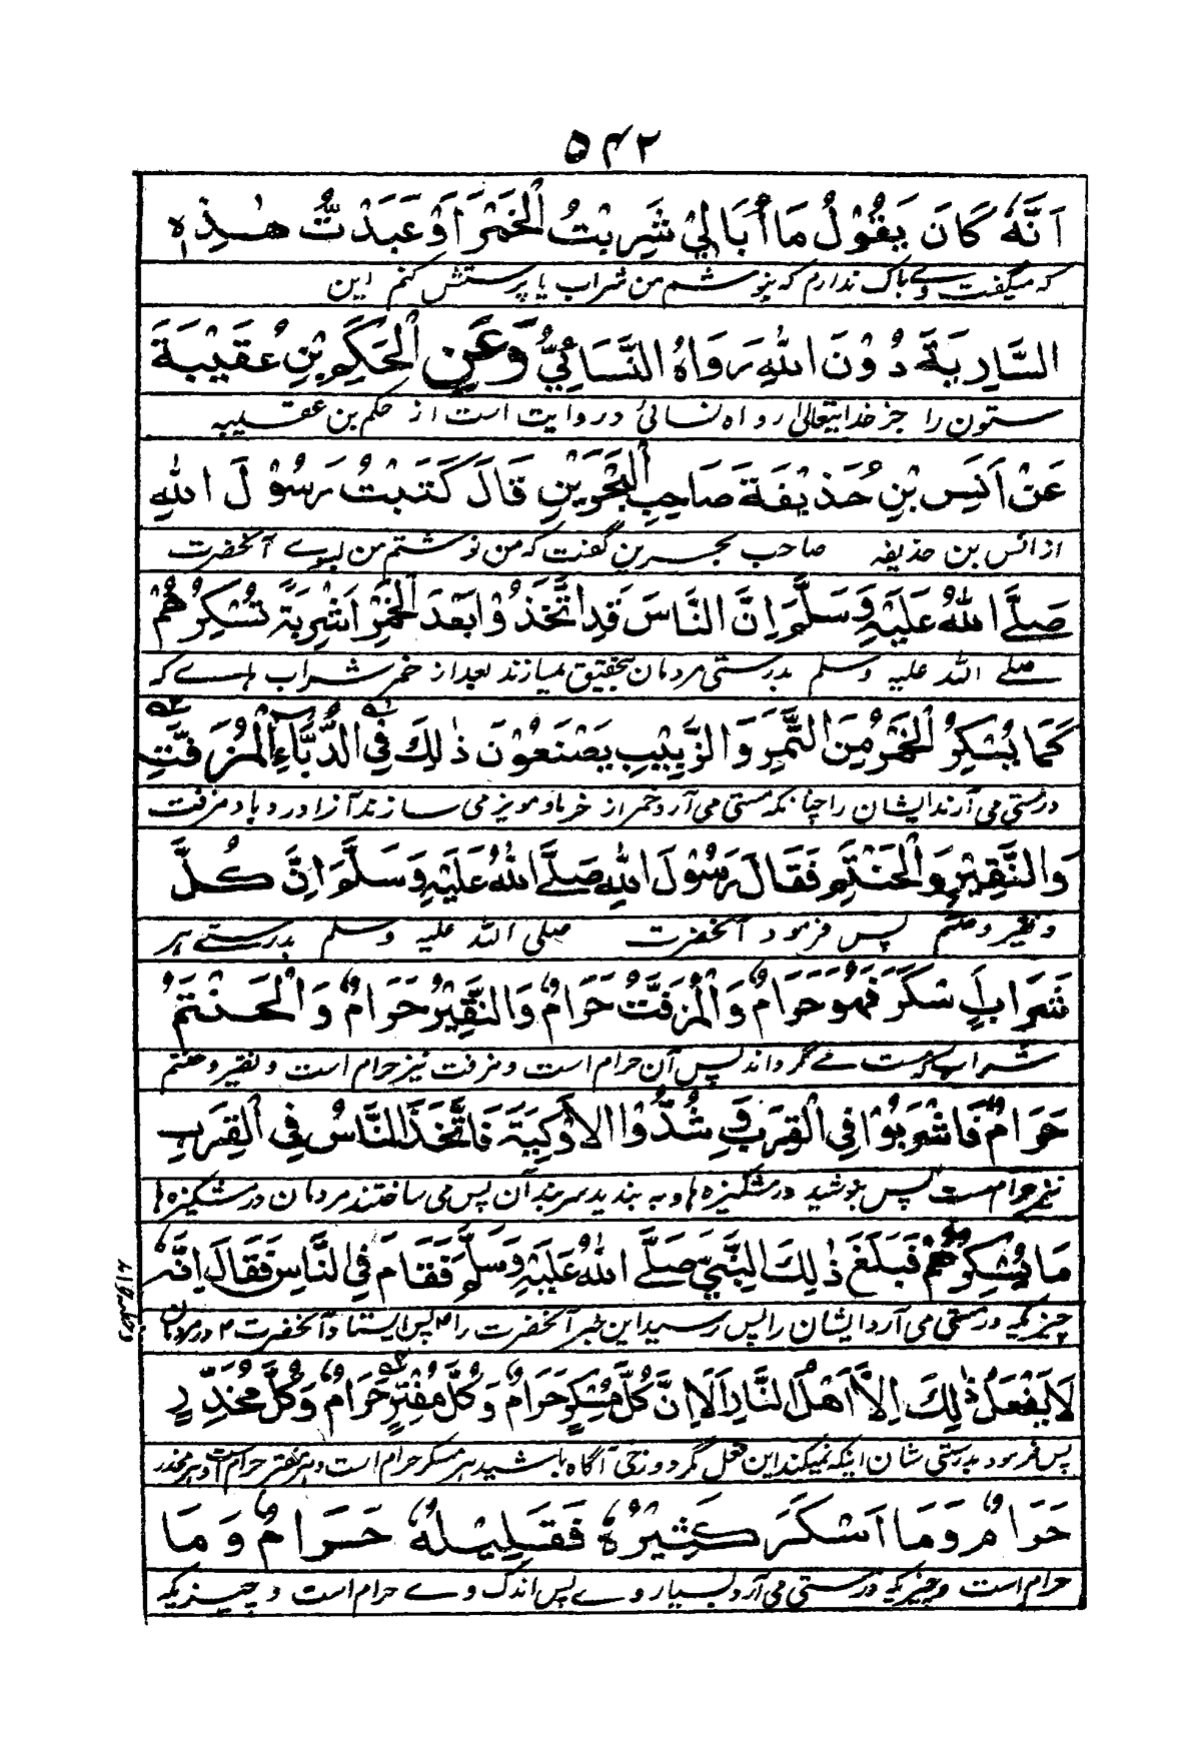 ۵۴۲
اَنَّهٗ كَانَ يَقُوْلُ مَا اُبَالِيْ شَرِبْتُ الْخَمْرَ اَوْ عَبَدْتُّ هٰذِهٖ
که میگفت وے باک ندارم که بنوشم من شراب یا پرستش کنم این
السَّارِيَةَ دُوْنَ اللهِ رَوَاهُ النَّسَائِيُّ وَعَنِ الْحَكَمِ بْنِ عُقَيْبَةَ
ستون را جز خدایتعالی رواه نسائی و روایت است از حکم بن عقیبه
عَنْ اَنَسِ بْنِ حُذَيْفَةَ صَاحِبِ الْبَحْرَيْنِ قَالَ كَتَبْتُ رَسُوْلَ اللهِ
از انس بن حذیفه صاحب بحرین گفت که من نوشتم من بسوے آنحضرت
صَلَّے اللهُ عَلَيْهِ وَسَلَّمَ اِنَّ النَّاسَ قَدِ اتَّخَذُوْا بَعْدَ الْخَمْرِ اَشْرِبَةً تُسْكِرُهُمْ
صلے الله علیه وسلم بدرستی مردمان بتحقیق میسازند بعد از خمر شراب هاے که
كَمَا يُسْكِرُ الْخَمْرُ مِنَ التَّمَرِ وَالزَّبِيْبِ يَصْنَعُوْنَ ذٰلِكَ فِي الدُّبَّاءِ الْمُزَفَّتِ
درمستی می آرند ایشان را چنانکه مستی می آرد خمر از خرما و مویز می سازند آنرا در دبا و مزفت
وَالنَّقِيْرِ وَالْحَنْتَمِ فَقَالَ رَسُوْلَ اللهِ صَلَّے اللهُ عَلَيْهِ وَسَلَّمَ اِنَّ كُلَّ
و نقیر و حنتم پس فرمود آنحضرت صلی الله علیه وسلم بدرستے هر
شَرَابٍ سَكَرَ فَهُوَ حَرَامٌ وَالْمُزَفَّتُ حَرَامٌ وَالنَّقِيْرُ حَرَامٌ وَالْحَنْتَمُ
شراب که مست مے گرداند پس آن حرام است و مزفت نیز حرام است و نقیر و حنتم
حَرَامٌ فَاشْرَبُوْا فِي الْقِرَبِ وَ شُدُّوا الْاَوْكِيَةَ فَاتَّخَذَ النَّاسُ فِي الْقِرَبِ
نیز حرام است پس بنوشید در مشکیزه ها و به بندید سربند آن پس می ساختند مردمان در مشکیزه ها
مَا يُسْكِرُهُمْ فَبَلَغَ ذٰلِكَ النَّبِيَّ صَلَّے اللهُ عَلَيْهِ وَسَلَّمَ فَقَامَ فِي النَّاسِ فَقَالَ اِنَّهٗ
چیزیکه درمستی می آرد ایشان را پس رسید این خبر آنحضرت را پس ایستاد آنحضرت در مردمان
لَا يَفْعَلُ ذٰلِكَ اِلَّا اَهْلُ النَّارِ اَلَا اِنَّ كُلَّ مُسْكِرٍ حَرَامٌ وَكُلَّ مُفْتِرٍ حَرَامٌ وَكُلَّ مُخَدِّرٍ
پس فرمود بدرستی شان اینکه نمیکند این فعل مگر دوزخی آگاه باشید هر مسکر حرام است و هر مفتر حرام است و هر مخدر
حَرَامٌ وَمَا اَسْكَرَ كَثِيْرُهٗ فَقَلِيْلُهٗ حَرَامٌ وَمَا
حرام است و چیزیکه درمستی می آرد بسیار وے پس اندک وے حرام است و چیزیکه